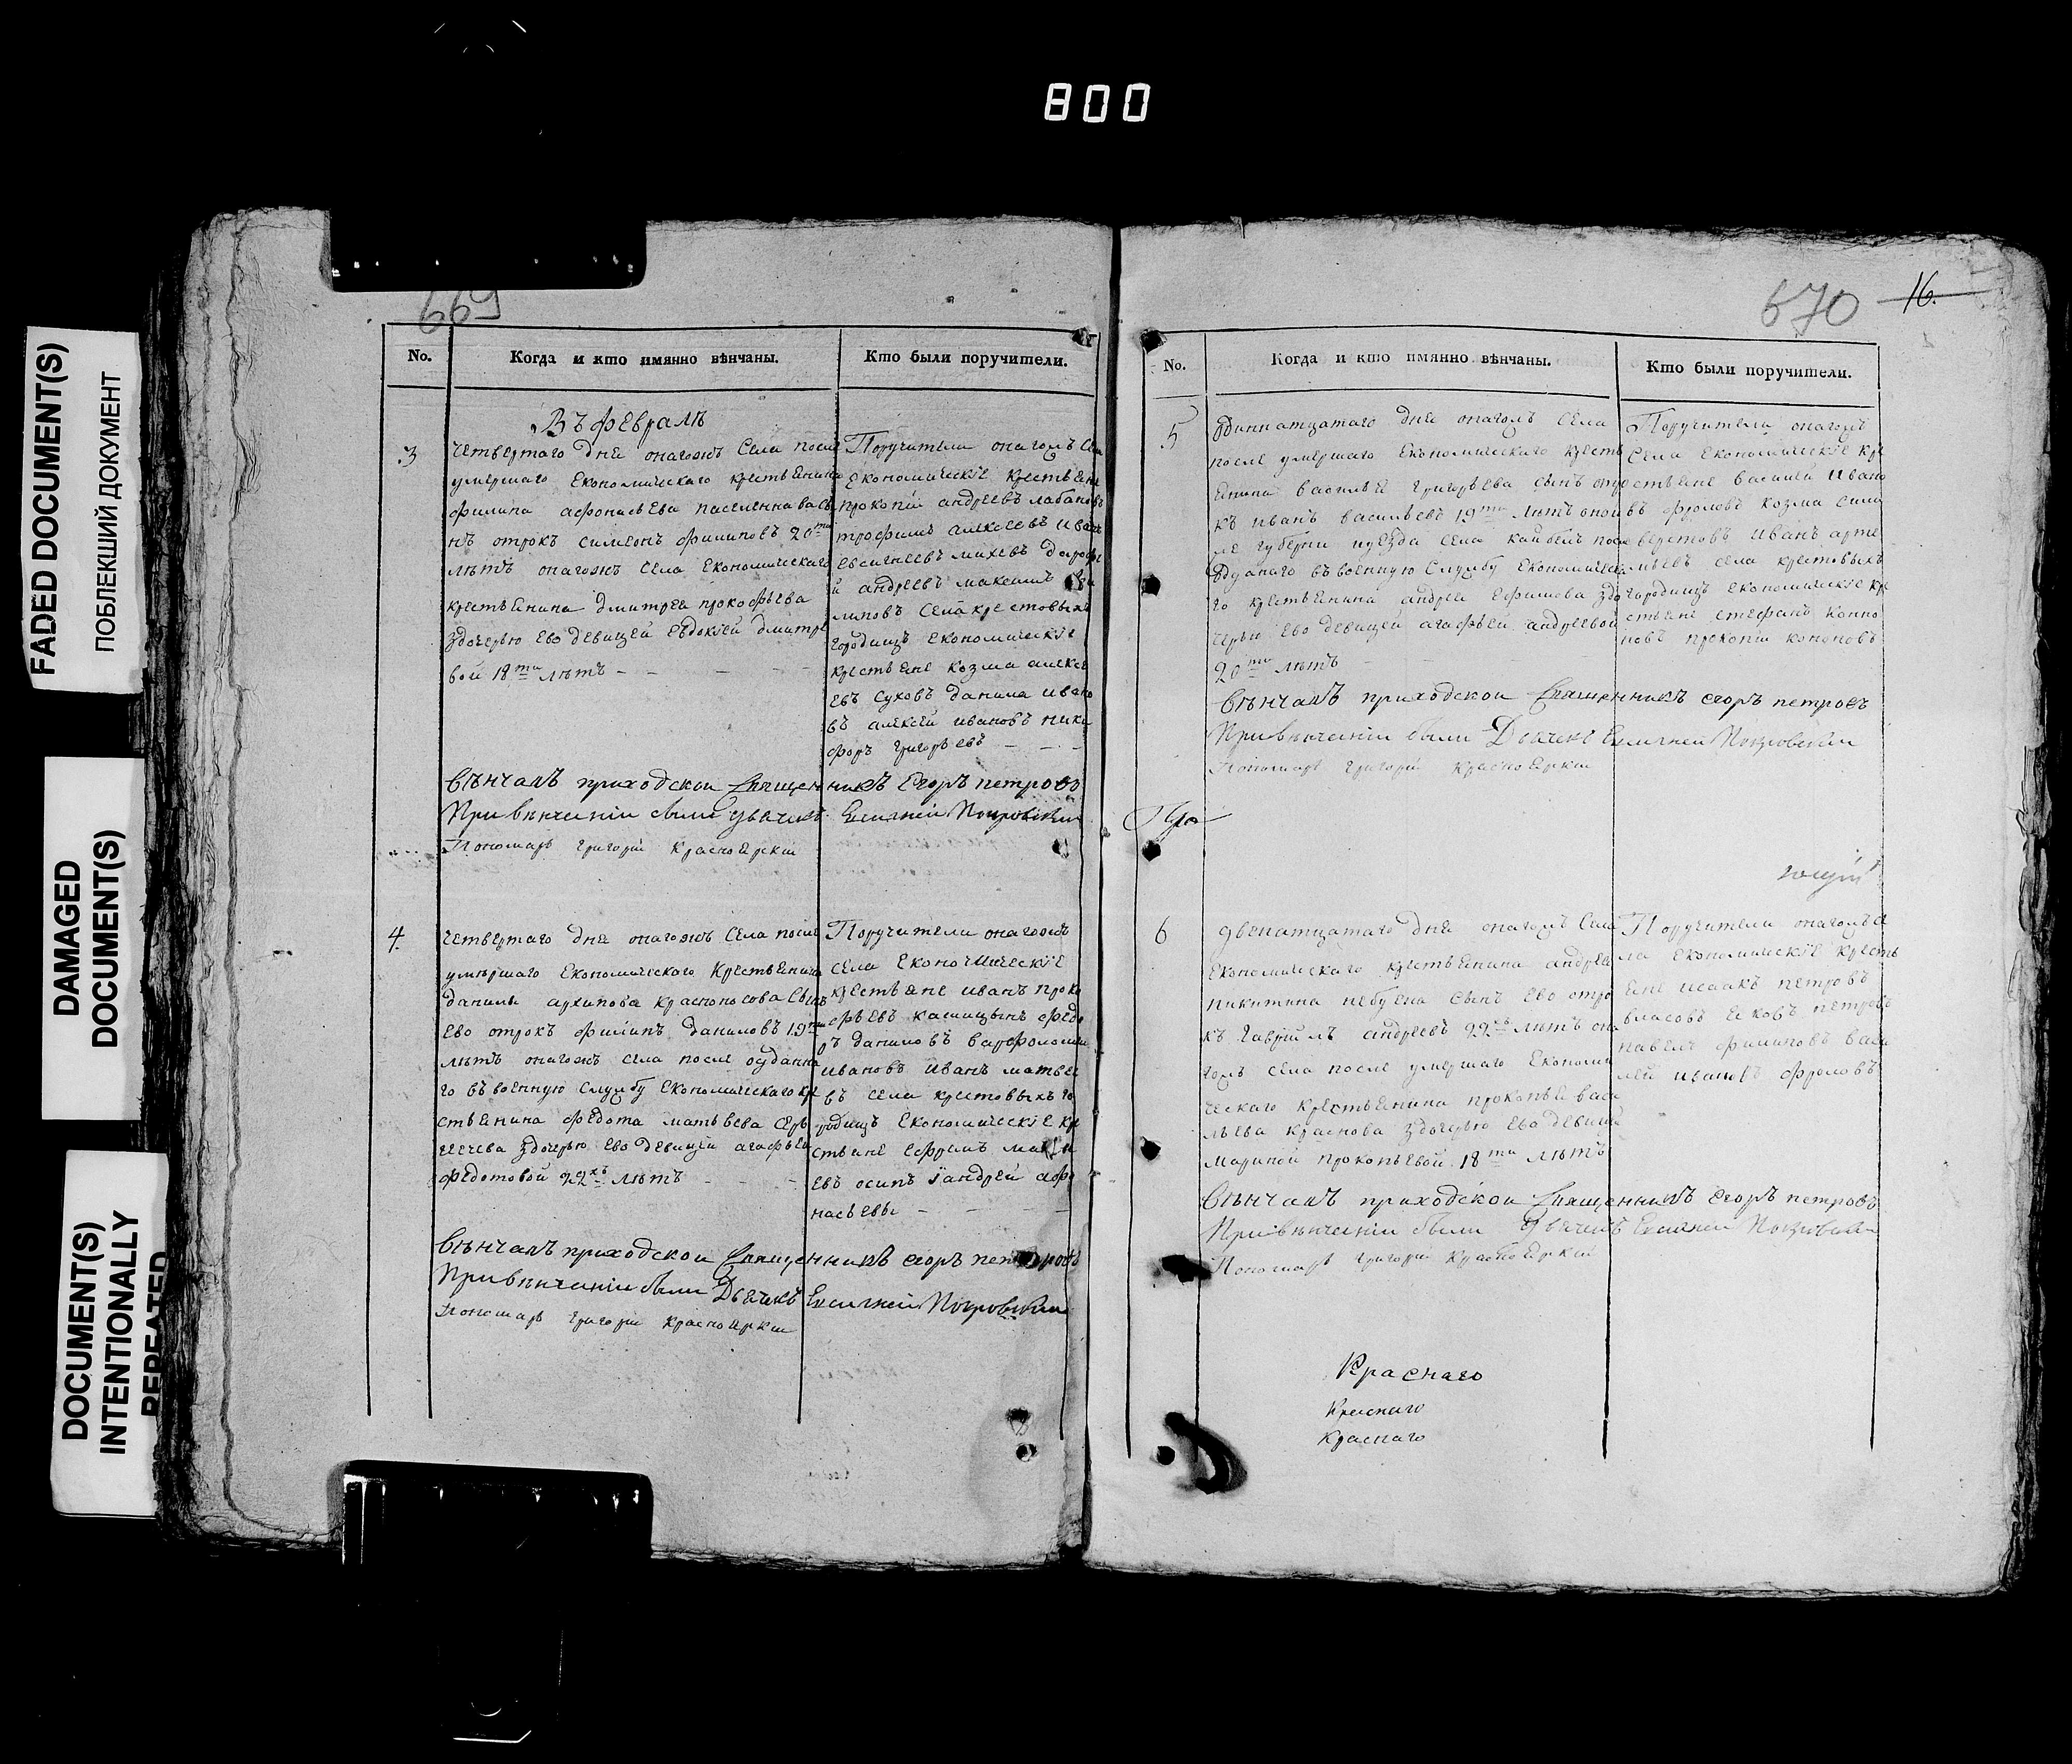 800
FADED DOCUMENT(S)
ПОБЛЕКШИЙ ДОКУМЕНТ
DAMAGED
DOCUMENT(S)
DOCUMENT(S)
INTENTIONALLY
REPEATED
669
No.
Когда и кто имянно вѣнчаны.
Кто были поручители.
Въ февралѣ
3
четвертаго дня онагожъ Села после
умершаго Економическаго крестьянина
филипа афонасьева
нъ отрокъ симеонъ филиповъ 20ти
лѣтъ онагожъ Села Економическаго
крестьянина дмитрея прокофьева
здочерью Ево девицей Евдокіей дмитре
вой 18ти лѣтъ
Поручители онагожъ Се
економическіе крестьяне
прокопій андреевъ лабановъ
трофимъ алексеевъ иванъ
евсигнеевъ михевъ дорофе
й андреевъ максимъ
липовъ Села крестовыхъ
городищъ економическіе
крестьяне козма алексе
евъ суховъ данила ивано
въ алексей ивановъ ники
форъ григорьевъ
вѣнчалъ приходской Священникъ Егоръ петровъ
При венченіи были дьячекъ Евсигней Покровскии
Пономарь григорій Красноярскій
4.
четвертаго дня онагожъ Села после
умершаго Економическаго Крестьянина
данилы архипова красноносова Сынъ
ево отрокъ филипъ даниловъ 19ти
лѣтъ онагожъ села после отданна
го въ военную Службу Економическаго кре
стьянина федота матвева
здочерью ево девицей агафьей
федотовой 22хъ лѣтъ
Поручители онагожъ
села Економическіе
крестьяне иванъ проко
фьевъ федо
ръ даниловъ варфоломей
ивановъ иванъ матвее
въ села крестовыхъ го
родищъ Економическіе кре
стьяне ефремъ
евъ осипъ їандрей афо
насьевы
вѣнчалъ приходской Священникъ егоръ петровъ
При венченіи были Дьячекъ Евсигней Покровскии
Пономарь григорій Красноярскій
670
16.
No.
Когда и кто имянно вѣнчаны.
Кто были поручители.
5
Одиннатцатаго дня онагожъ Села
после умершаго Економическаго кресть
янина василья григорьева сынъ отро
къ иванъ васильевъ 19ти лѣтъ
губерни уезда села после
отданаго въ военную Службу Економическа
го крестьянина андрея Ефимова здо
черью Ево девицей агафьей андреевой
20ти лѣтъ
Поручители онагожъ
Села Економическіе кре
стьяне василей ивано
въ фроловъ козма
иванъ арте
мьевъ села крестовыхъ
городищъ економическіе кре
стьяне стефанъ
новъ прокопій кононовъ
вѣнчалъ приходской Священникъ егоръ петровъ
При венченіи были Дьячекъ Евсигней Покровскии
Пономарь григорій Красноярскій
6
двенатцатаго дня онагожъ Села
Економическаго крестьянина андрея
никитина сынъ ево отро
къ Гаврійлъ андреевъ 22хъ лѣтъ она
гожъ села после умершаго Економи
ческаго крестьянина прокопья васи
льева краснова здочерью ево девицей
Мариной прокопьевой 18ти лѣтъ
Поручители онагожъ се
ла Економическіе кресть
яне исаакъ петровъ
власовъ яковъ петровъ
павелъ филиповъ васи
лей ивановъ фроловъ
вѣнчалъ приходской Священникъ егоръ петровъ
При венченіи были Дьячекъ Евсигней Покровскии
Пономарь григорій Красноярскій
Краснаго
Краснаго
Краснаго